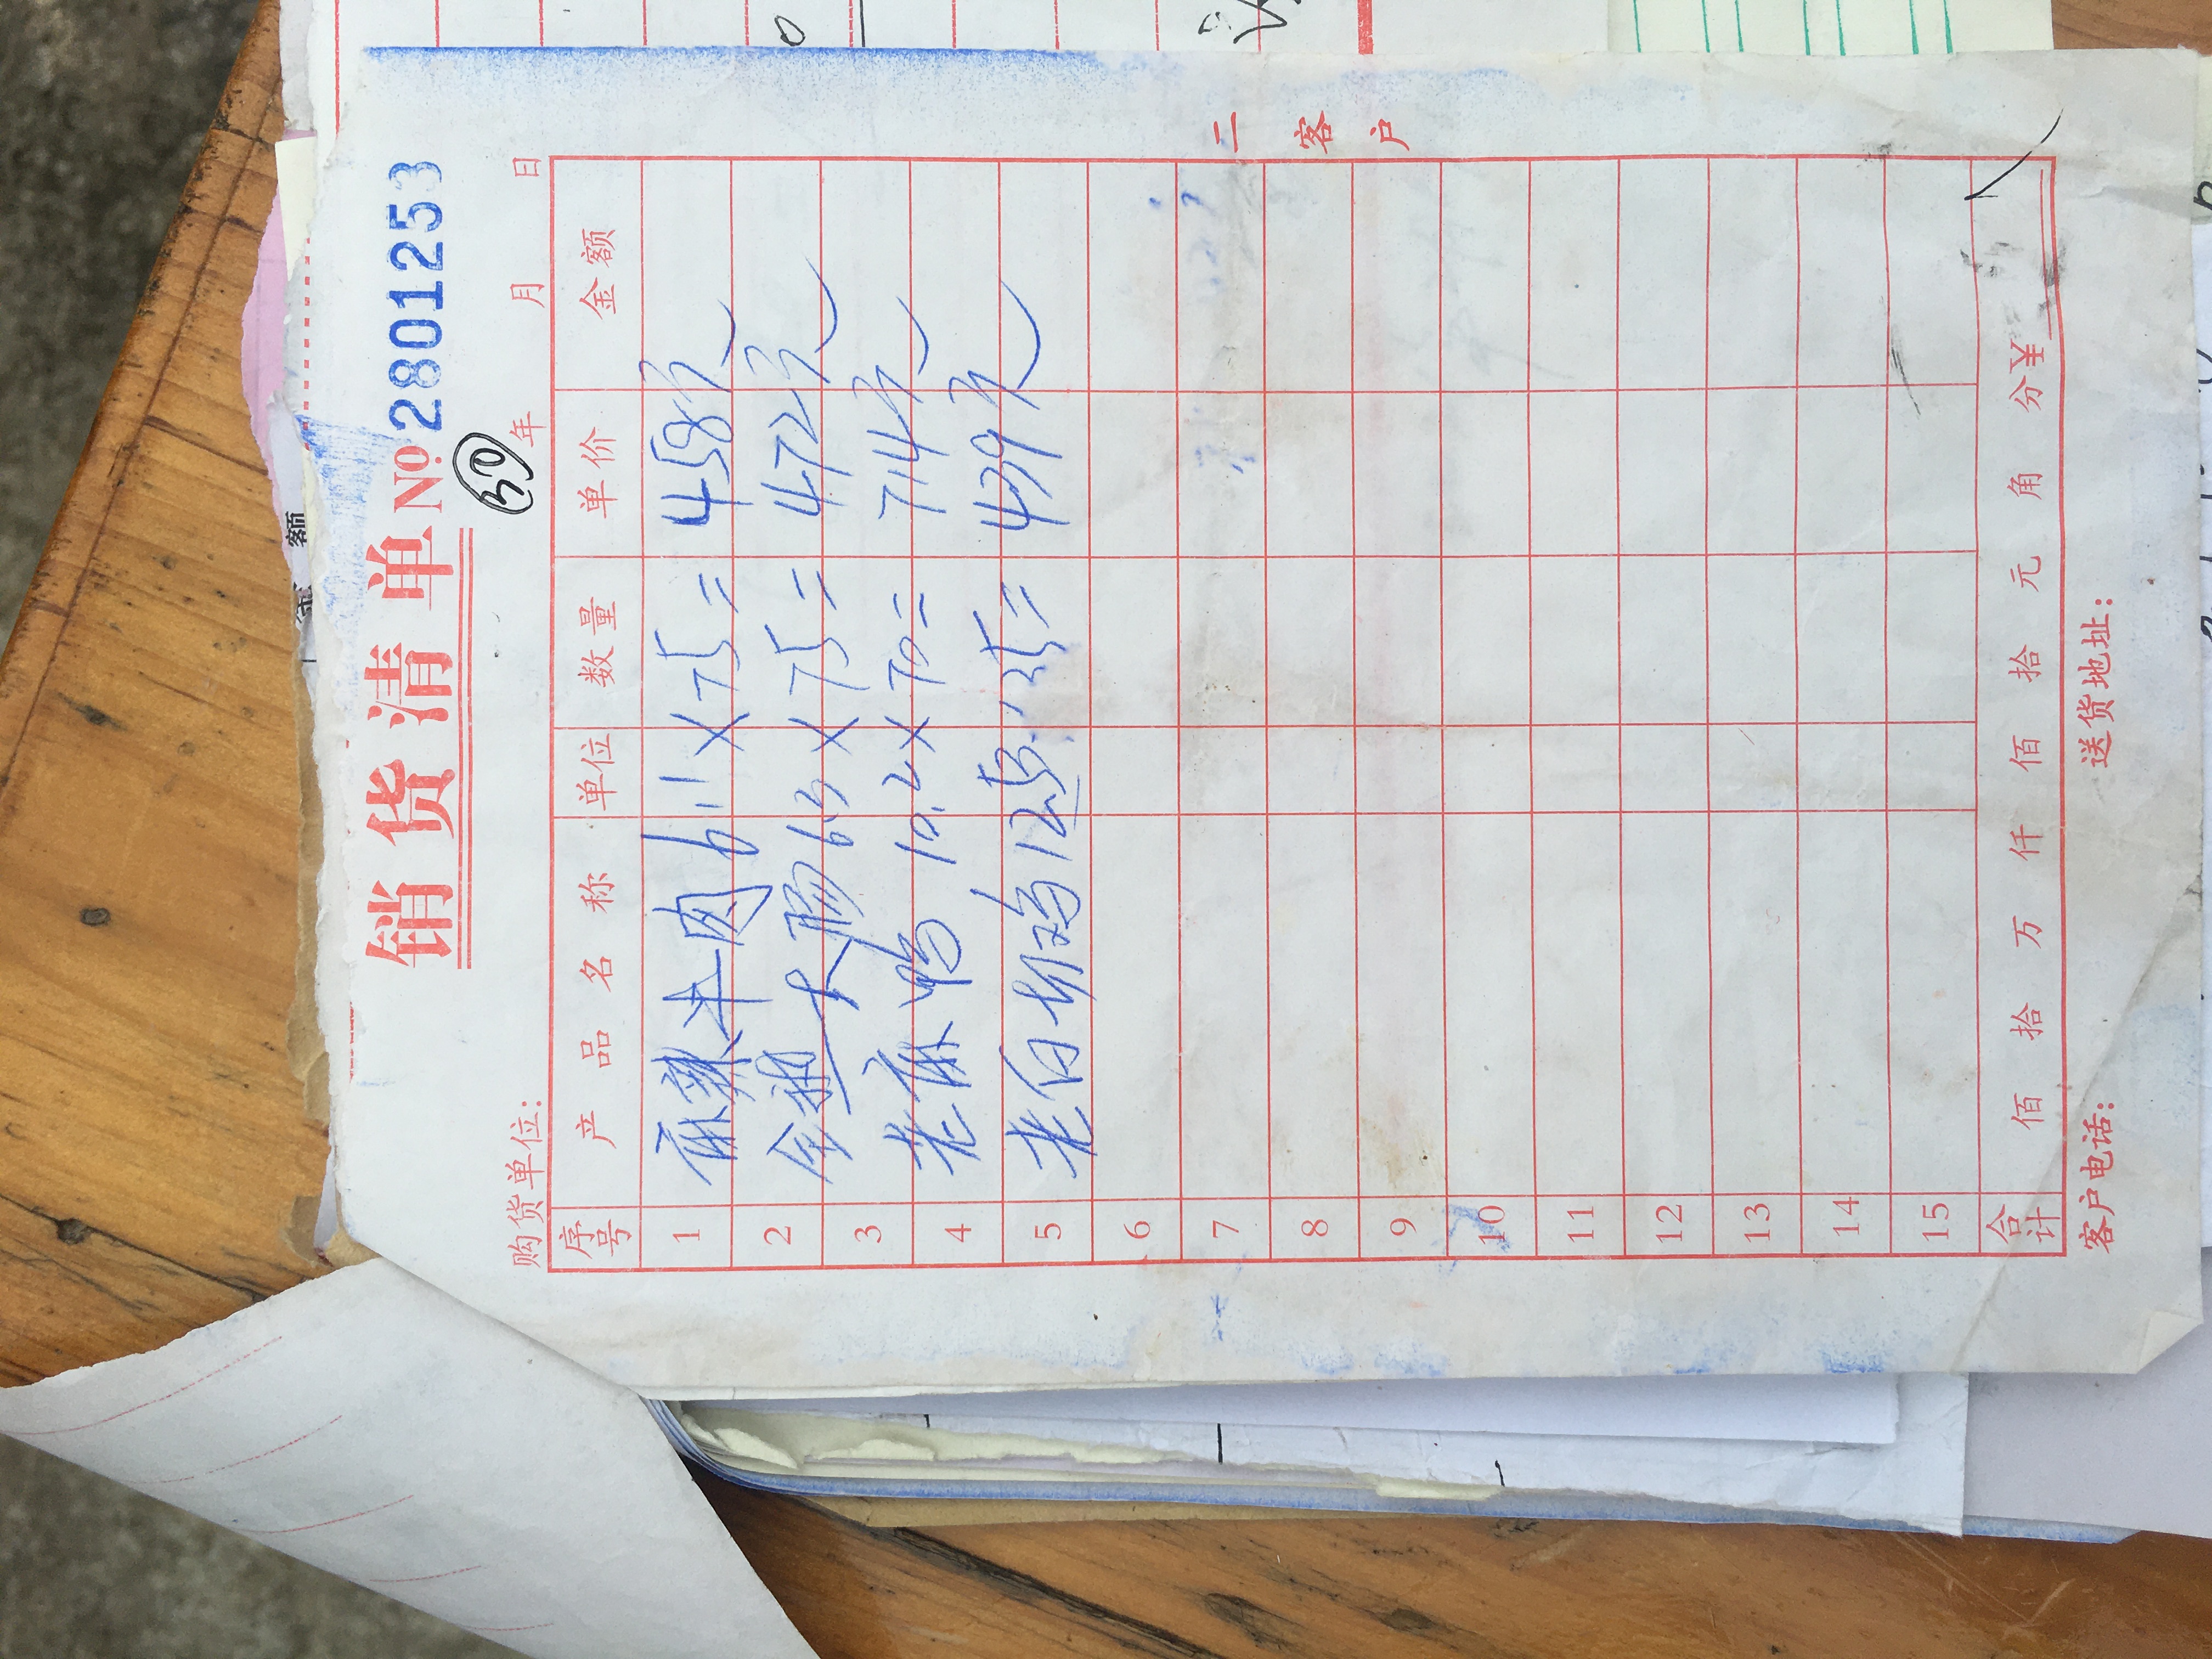 金额
销货清单 No 2801253
30
购货单位: 年 月 日
序号 产品名称 单位 数量 单价 金额
1 麻辣牛肉 6.1×75= 458元
2 全熟大肠 6.3×75= 472元
3 老麻鸭 10.2×70= 714元
4
5 老白切鸡 1253.35= 439元
6
7
8
9
10
11
12
13
14
15
合计 佰 拾 万 仟 佰 拾 元 角 分 ¥
客户电话: 送货地址:
二客户